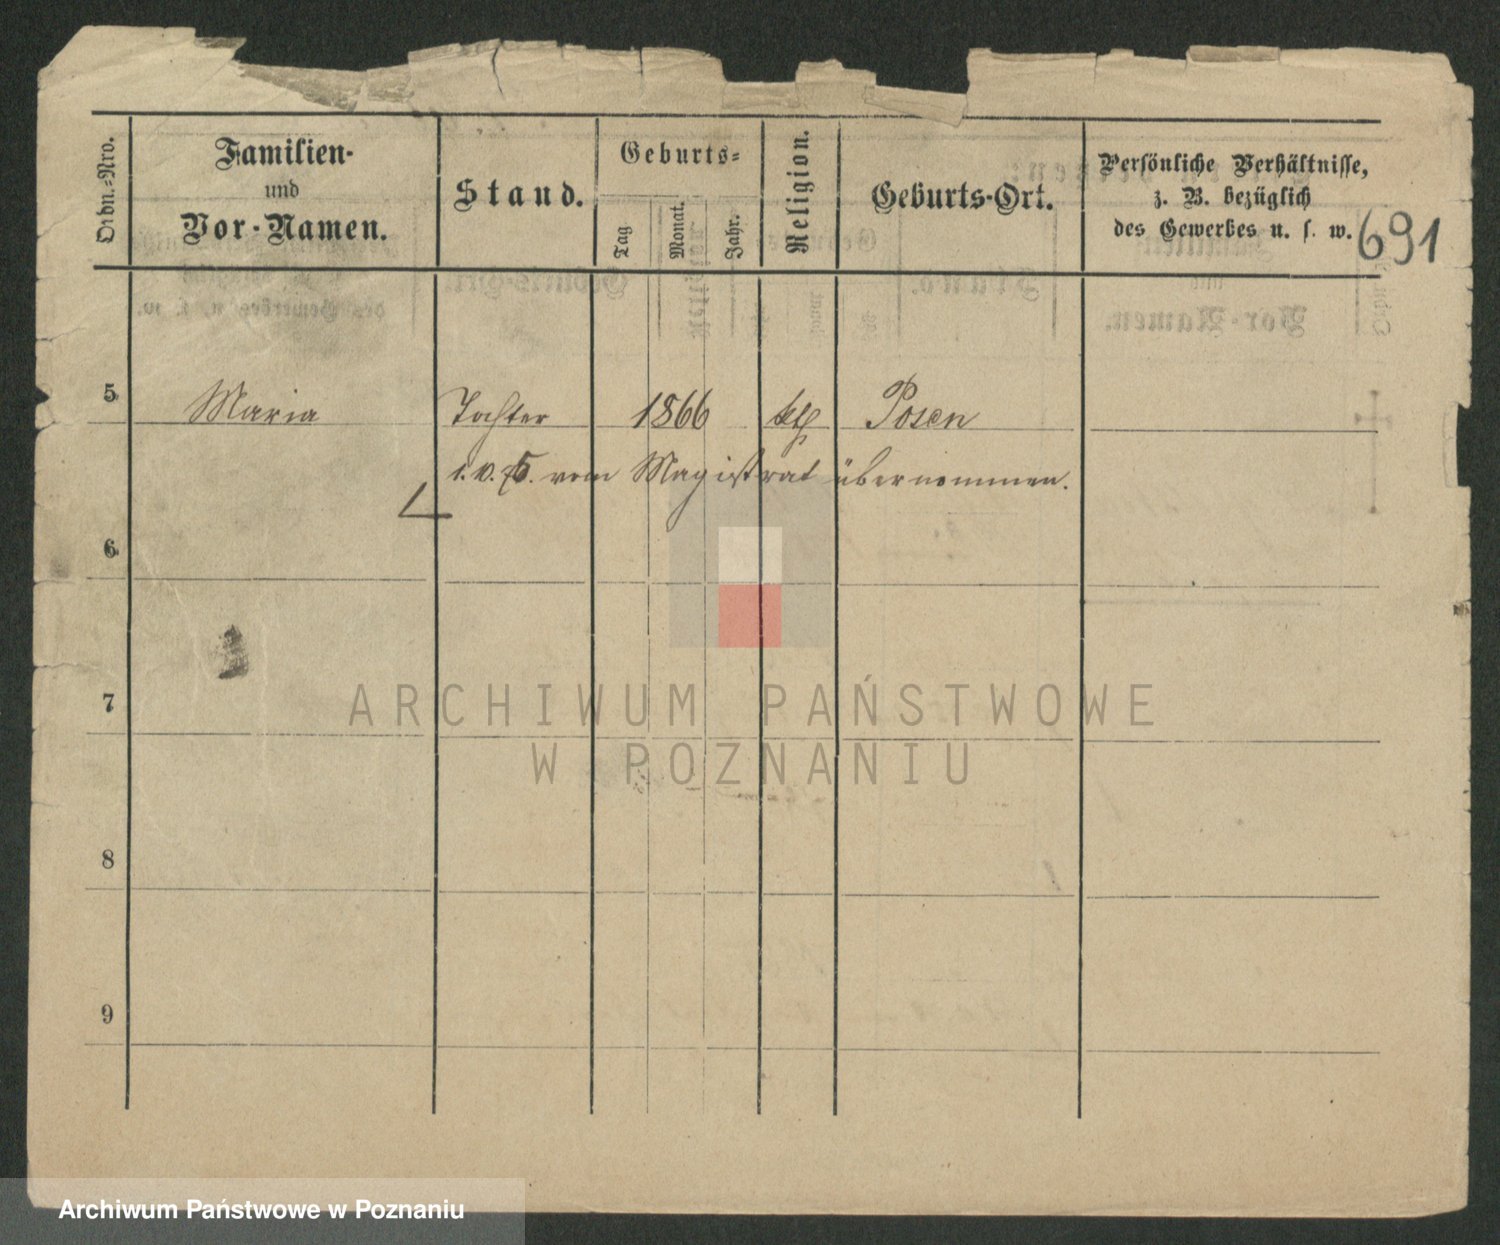 Ordn.-Nro.
Familien-
und
Vor-Namen.
Stand.
Geburts-
Tag
Monat.
Jahr.
Religion.
Geburts-Ort.
Persönliche Verhältnisse,
z. B. bezüglich
des Gewerbes u. s. w.
691
5 Maria Tochter 1866 kth Posen
vom Magistrat übernommen.
6
7
8
9
ARCHIWUM PAŃSTWOWE
W POZNANIU
Archiwum Państwowe w Poznaniu